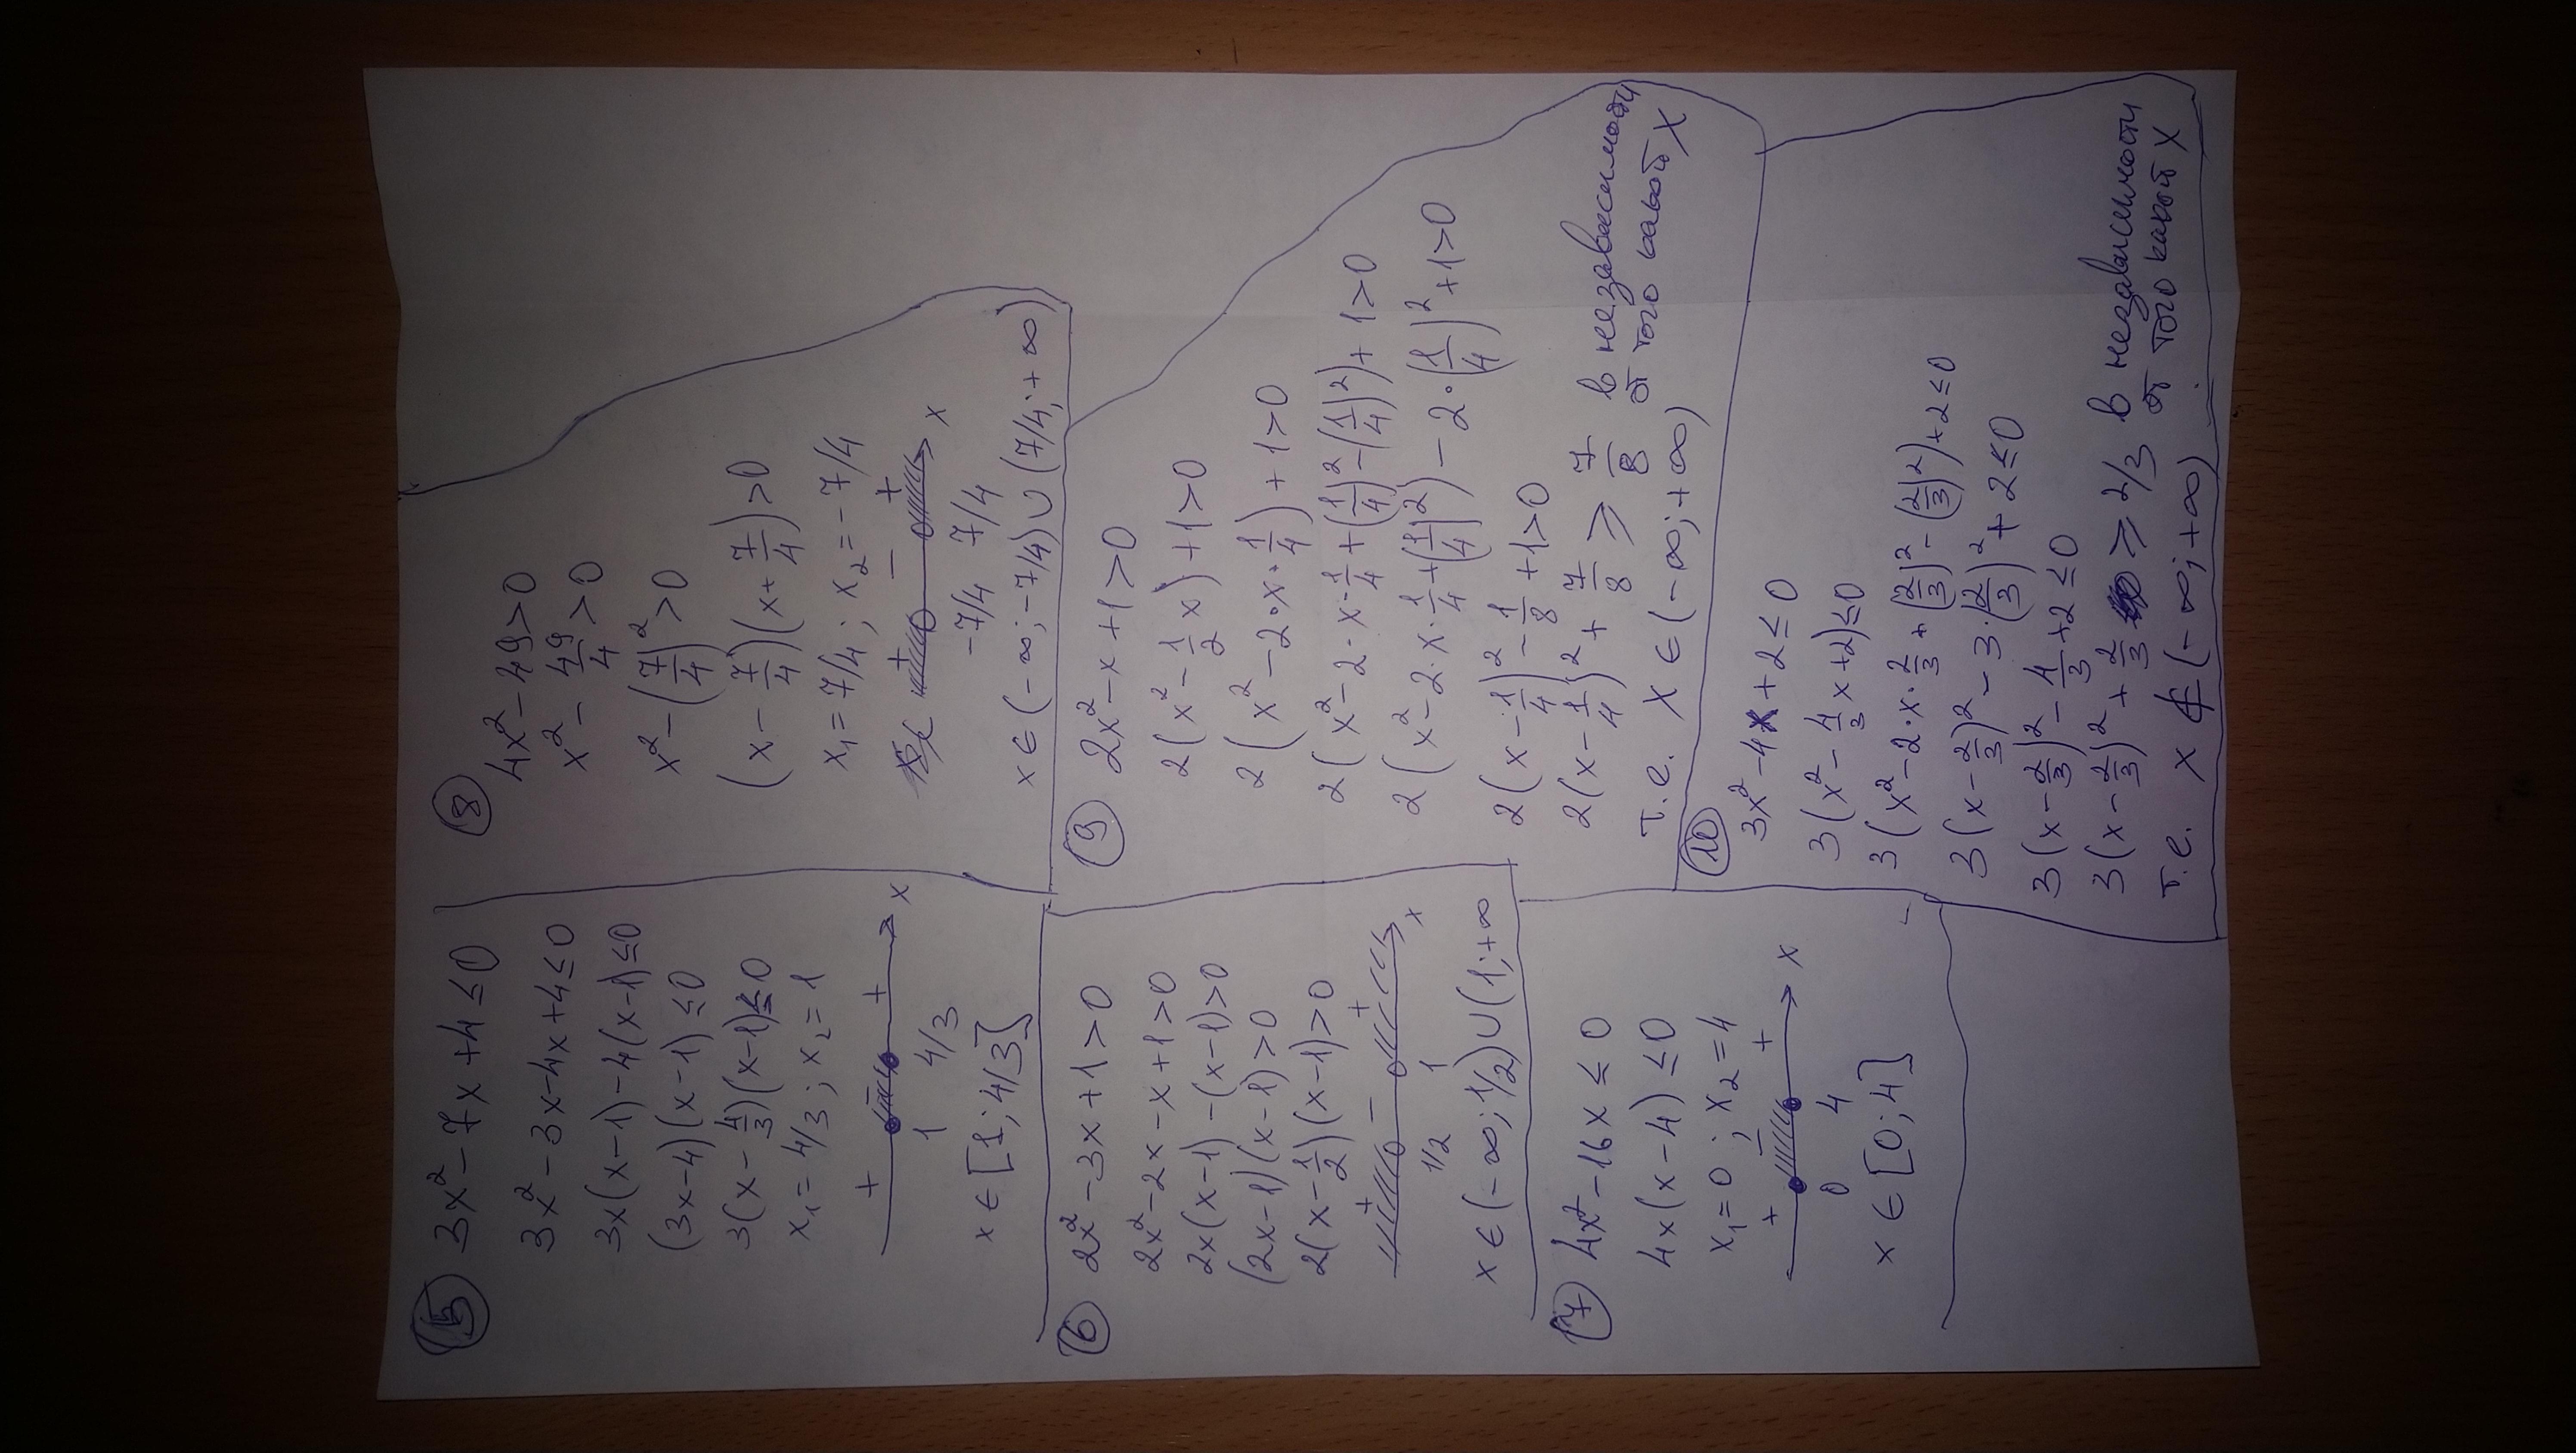 ⑤ 3x² - 7x + 4 ≤ 0
3x² - 3x - 4x + 4 ≤ 0
3x(x-1) - 4(x-1) ≤ 0
(3x-4)(x-1) ≤ 0
3(x - 4/3)(x-1) ≤ 0
x₁ = 4/3 ; x₂ = 1
+ - + x
1 4/3
x ∈ [1; 4/3]
⑥ 2x² - 3x + 1 > 0
2x² - 2x - x + 1 > 0
2x(x-1) - (x-1) > 0
(2x-1)(x-1) > 0
2(x - 1/2)(x-1) > 0
+ - + x
1/2 1
x ∈ (-∞; 1/2) ∪ (1; +∞
⑦ 4x² - 16x ≤ 0
4x(x-4) ≤ 0
x₁ = 0 ; x₂ = 4
+ - + x
0 4
x ∈ [0; 4]
⑧
4x² - 49 > 0
x² - 49/4 > 0
x² - (7/4)² > 0
(x - 7/4)(x + 7/4) > 0
x₁ = 7/4 ; x₂ = -7/4
+ - + x
-7/4 7/4
x ∈ (-∞; -7/4) ∪ (7/4; +∞)
⑨ 2x² - x + 1 > 0
2(x² - 1/2 x) + 1 > 0
2(x² - 2·x·1/4) + 1 > 0
2(x² - 2·x·1/4 + (1/4)² - (1/4)²) + 1 > 0
2(x² - 2·x·1/4 + (1/4)²) - 2·(1/4)² + 1 > 0
2(x - 1/4)² - 1/8 + 1 > 0
2(x - 1/4)² + 7/8 ≥ 7/8 в независимости
от того какой x
т.е. x ∈ (-∞; +∞)
⑩
3x² - 4x + 2 ≤ 0
3(x² - 4/3 x + 2) ≤ 0
3(x² - 2·x·2/3 + (2/3)² - (2/3)²) + 2 ≤ 0
3(x - 2/3)² - 3·(2/3)² + 2 ≤ 0
3(x - 2/3)² - 4/3 + 2 ≤ 0
3(x - 2/3)² + 2/3 ≥ 2/3 в независимости
от того какой x
т.е. x ∉ (-∞; +∞)